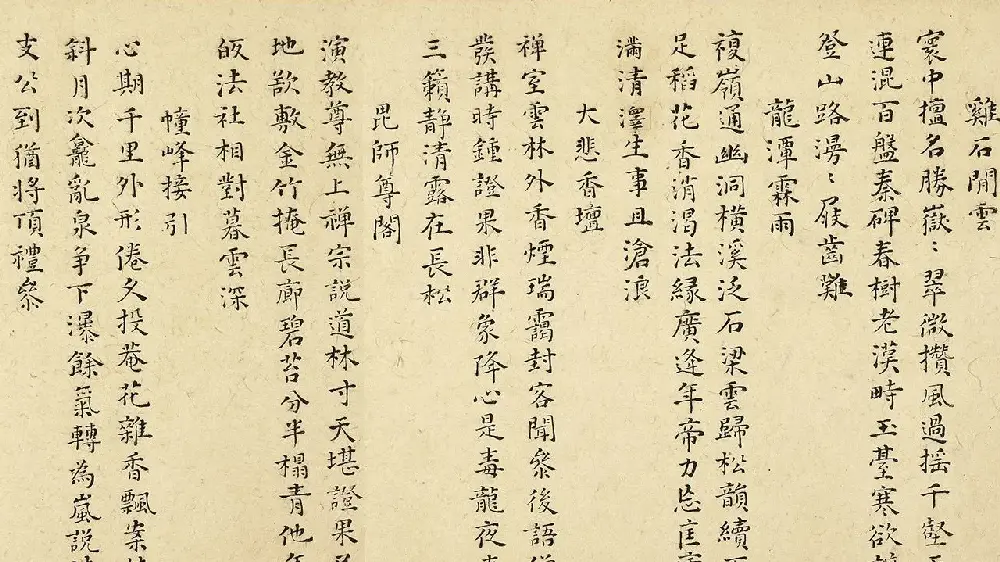 雞石閒雲
寰中擅名勝嶽〻翠微攢風過搖千壑
連混百盤秦碑春樹老漢畤玉臺寒欲
登山路澷〻屐齒難
龍潭霖雨
複嶺通幽洞橫溪泛石梁雲歸松韻續
足稻花香消渴法緣廣逢年帝力忘匡
滿清澤生事且滄浪
大悲香壇
禅室雲林外香煙瑞靄封客聞叅後語
發講時鍾證果非群象降心是毒龍夜
三籟靜清露在長松
毘師尊閣
演教尊無上禅宗説道林寸天堪證果
地欲敷金竹掩長廊碧苔分半榻青他
皈法社相對暮雲深
幢峰接引
心期千里外形倦夂投菴花雜香飄案
斜月次龕亂泉争下瀑餘氣轉為嵐説
支公到猶將頂禮叅